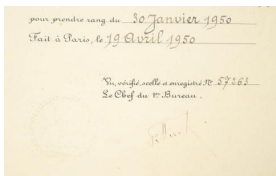 pour prendre rang du 30 Janvier 1950
Fait à Paris, le 19 Avril 1950
Vu, vérifié, scellé et enregistré N° 57263
Le Chef du 1er Bureau.